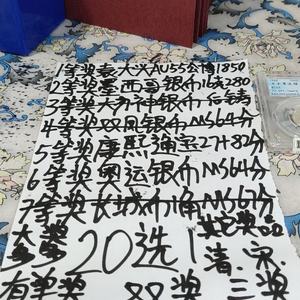 1等奖袁大头AU55公博1850
2等奖墨西哥银币16克280
3等奖大力神银币后铸
4等奖双凤银币MS64分
5等奖康熙通宝27十82分
6等奖奥运银币MS64分
7等奖长城币通MS67分
大奖多多
20选1
其它奖品
清、宋、
有单奖 双奖 三奖